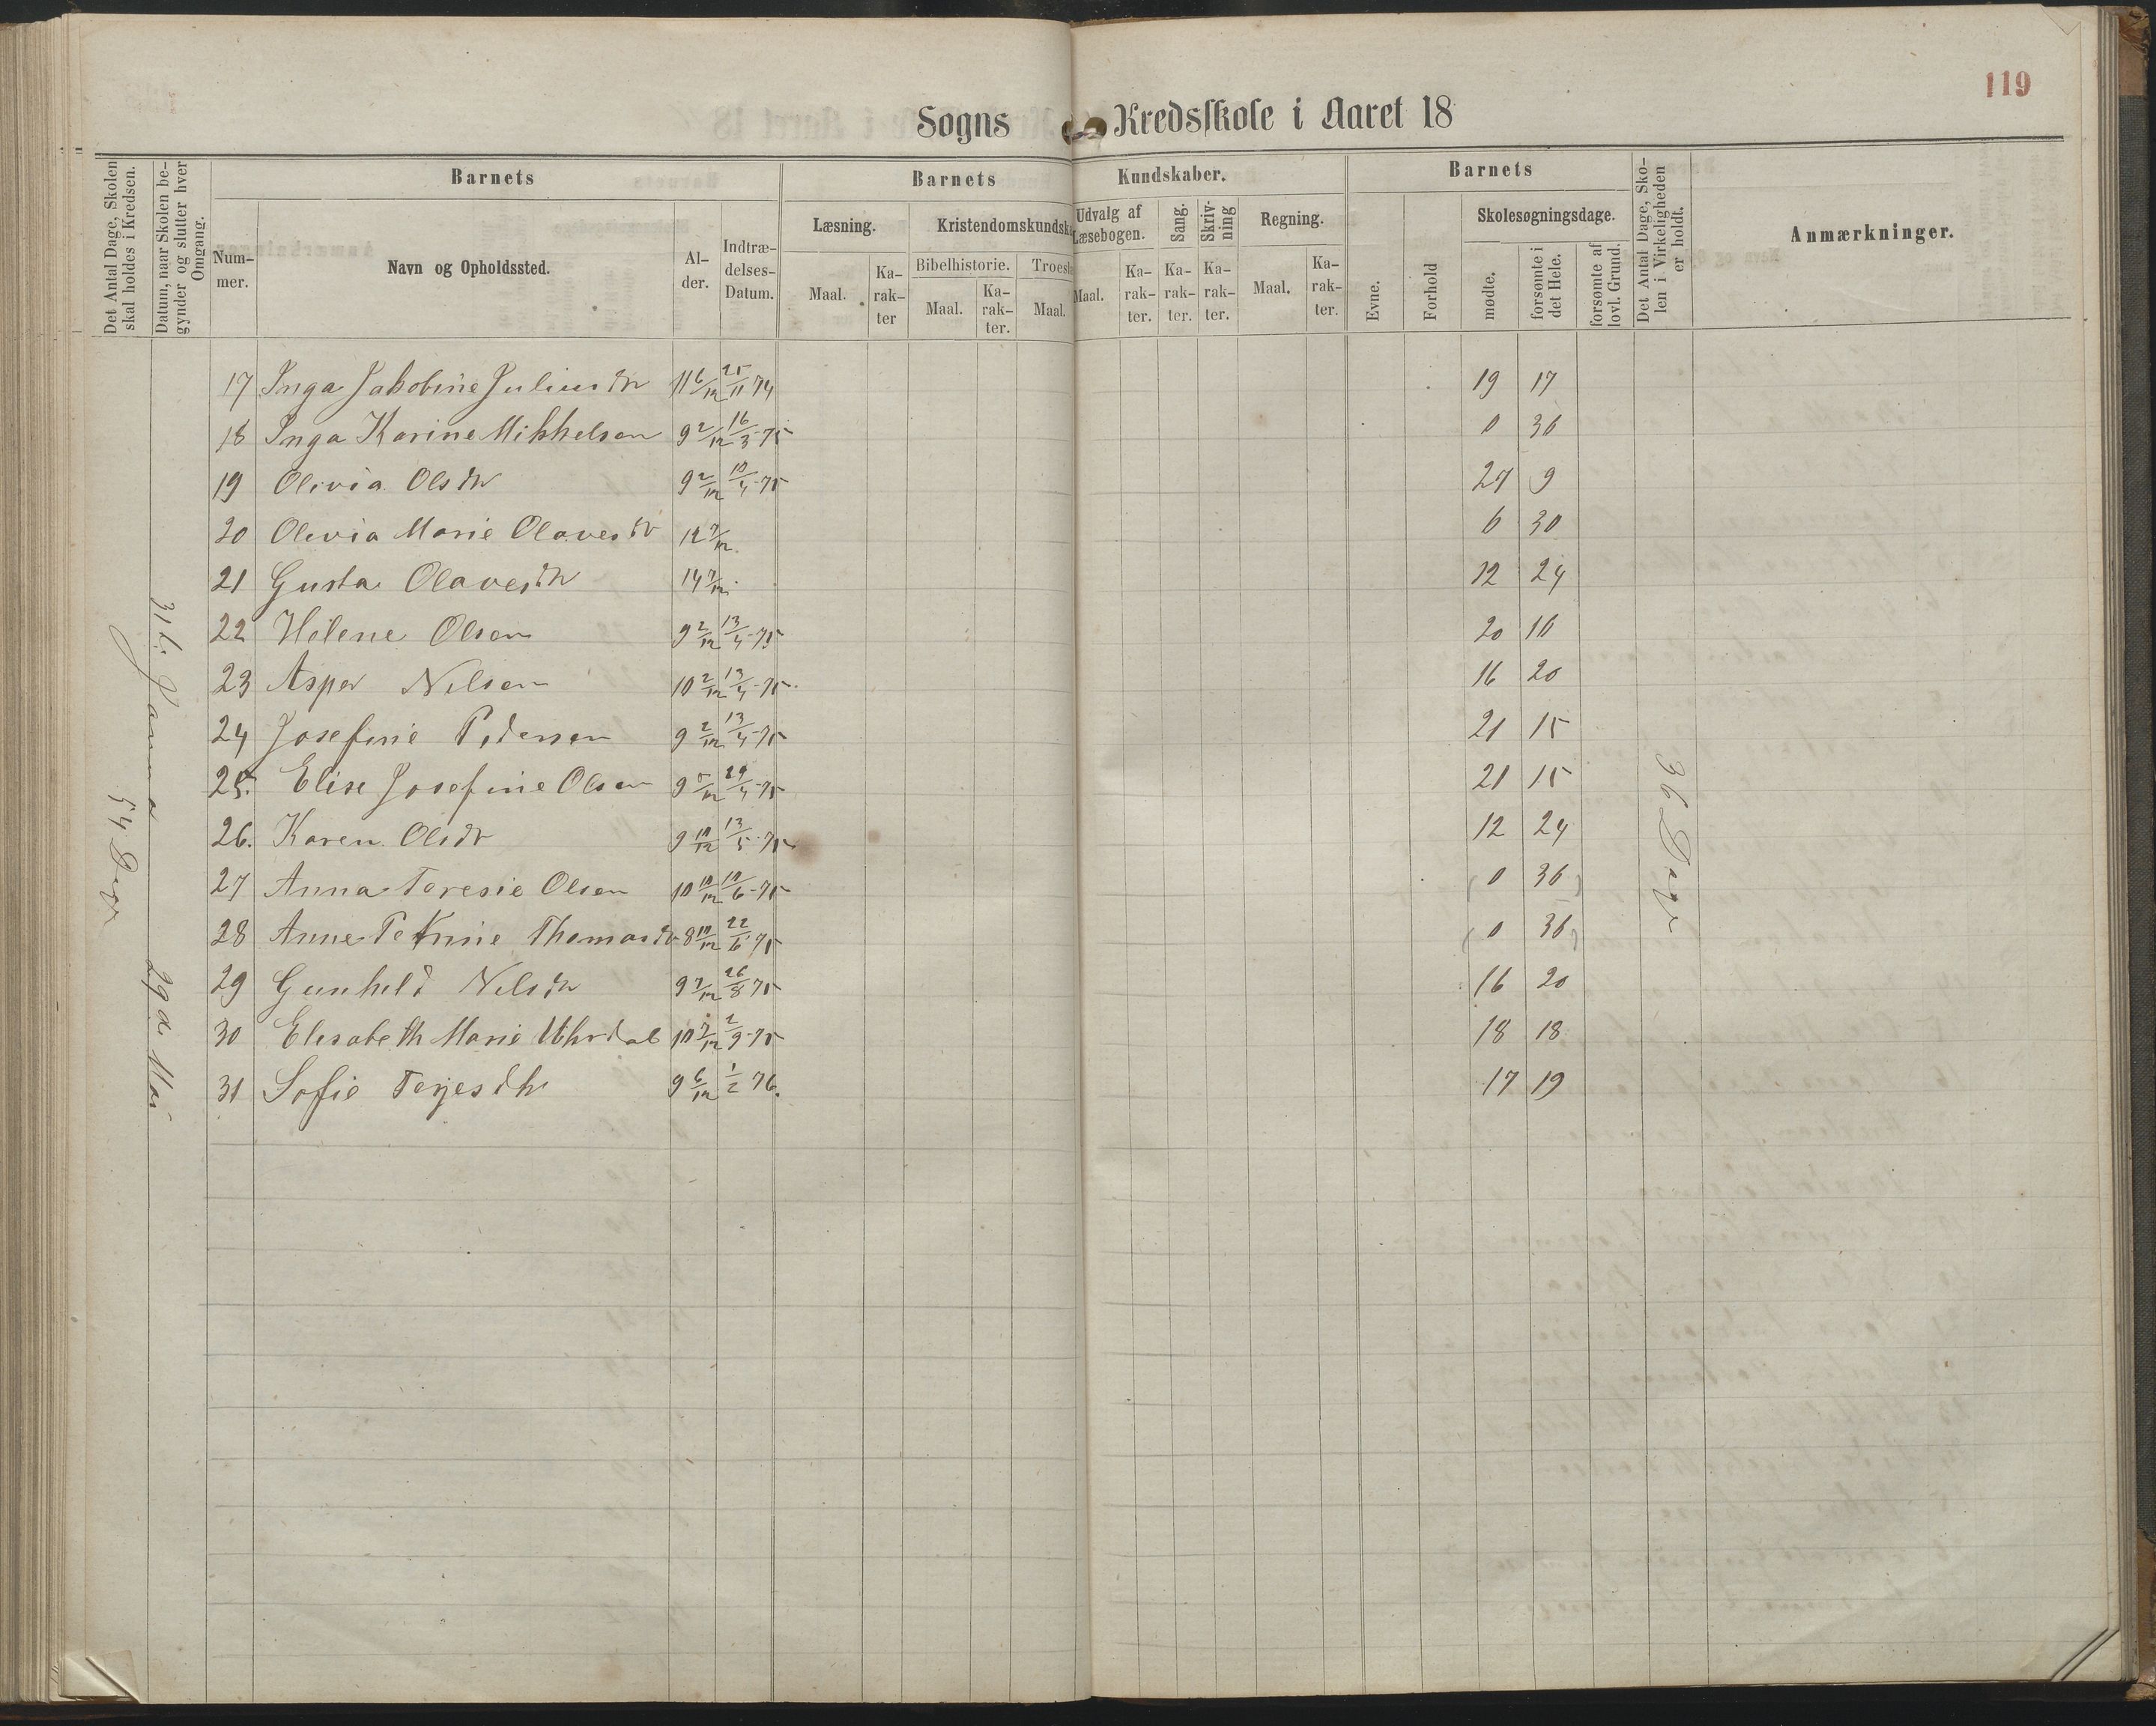 119
Sogns Kredsskole i Aaret 18
Det Antal Dage, Skolen skal holdes i Kredsen.
Datum, naar Skolen begynder og slutter hver Omgang.
Barnets
Nummer.
Navn og Opholdssted.
Alder.
Indtrædelses-Datum.
Barnets Kundskaber.
Læsning.
Maal.
Karakter
Kristendomskundsk
Bibelhistorie.
Maal.
Karakter.
Troesl
Maal.
Udvalg af Læsebogen.
Maal.
Karakter.
Sang.
Karakter.
Skrivning
Karakter.
Regning.
Maal.
Karakter.
Barnets
Evne.
Forhold
Skolesøgningsdage.
mødte.
forsømte i det Hele.
forsømte af lovl. Grund.
Det Antal Dage, Skolen i Virkeligheden er holdt.
Anmærkninger.
54 Dage
31te Januar 29de Mai
17 Inga Jakobine Juliusdtr 11 6/12 25/11 74 19 17
18 Inga Karine Mikkelsen 9 2/12 16/3-75 0 36
19 Olivia Olsdtr 9 2/12 10/4-75 27 9
20 Olivia Marie Olavesdtr 12 7/12 6 30
21 Gusta Olavesdtr 14 7/12 12 24
22 Helene Olsen 9 2/12 13/4-75 20 16
23 Asper Nilsen 10 2/12 13/4-75 16 20
24 Josefine Pedersen 9 2/12 13/4-75 21 15
25. Elise Josefine Olsen 9 5/12 29/4-75 21 15
26. Karen Olsdtr 9 10/12 13/5-75 12 24
27 Anna Teresie Olsen 10 10/12 10/6-75 (0 36)
28 Anne Petrine Thomasdtr 8 10/12 22/6-75 (0 36)
29 Gunhild Nilsdtr 9 7/12 26/8 75 16 20
30 Elisabeth Marie 10 7/12 2/9-75 18 18
31 Sofie Terjesdtr 9 6/12 1/2 76. 17 19
36 Dage